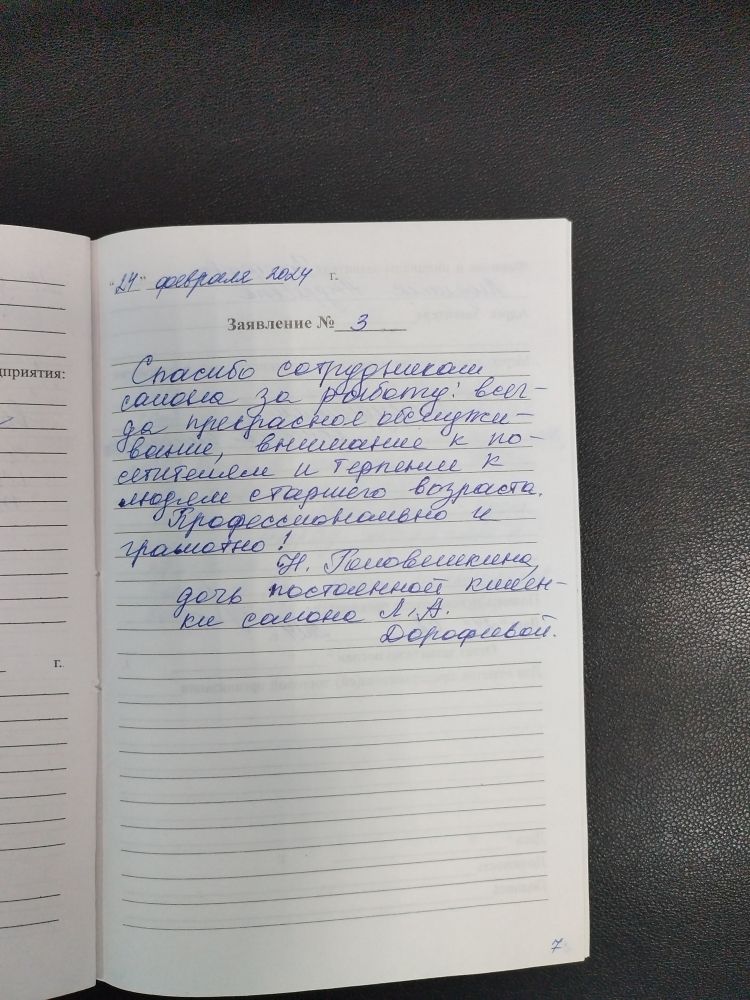 "24" февраля 2024 г.
Заявление № 3
Спасибо сотрудникам
салона за работу: всег-
да прекрасное обслужи-
вание, внимание к по-
сетителям и терпение к
людям старшего возраста.
Профессионально и
грамотно!
Н. Головешкина,
дочь постоянной клиен-
ки салона Л.А.
Дорофеевой.
7
дприятия:
г.